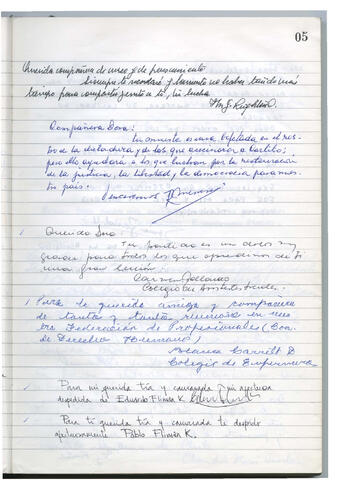 05
Querida compañera de curso y de pensamiento
Siempre te recordaré y lamento no haber tenido más
tiempo para compartir junto a ti, tu lucha
Compañera Sora:
Tu sonrisa es una bofetada en el ros-
tro de la dictadura y de los que asesinaron a
pero ello ayudará a los que luchan por la restauración
de la Justicia, la libertad y la democracia para nues-
tro país.
Venceremos
Querida Sora
Tu partida es un dolor muy
grande para todos los que aprendimos de ti
una gran lección.
Carmen
Colegio de Asistentes Sociales.
Para la querida amiga y compañera
de tantas y tantas reuniones en nues
tra Federación de Profesionales (Com.
de Derechos Humanos)
D
Colegio de Enfermeras
Para mi querida tía y camarada mi afectuosa
despedida de Eduardo Flimán K.
Para ti querida tía y camarada te despido
afectuosamente Pablo Flimán K.